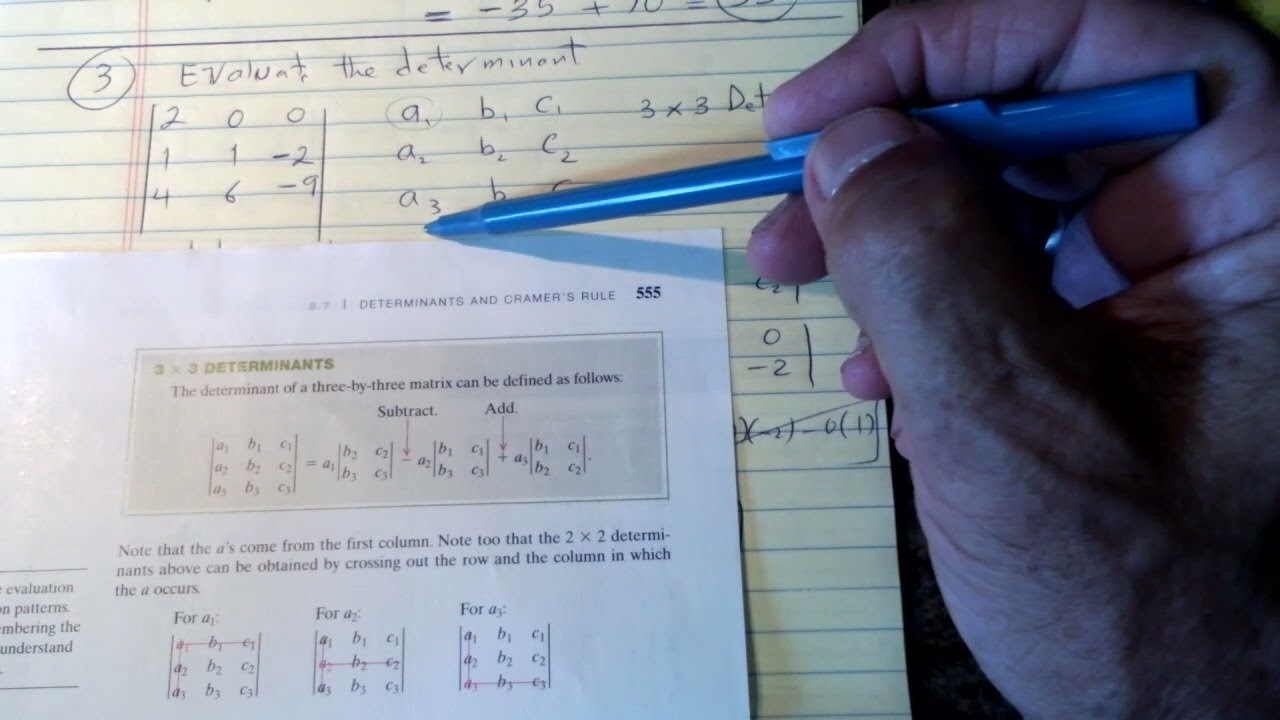 = -35 + 70 =
3 Evaluate the determinant
2 0 0 a₁ b₁ c₁ 3 x 3 Det
1 1 -2 a₂ b₂ c₂
4 6 -9 a₃ b
c₂
0
-2
)(-2) - 0(1)]
8.7 | DETERMINANTS AND CRAMER'S RULE 555
3 × 3 DETERMINANTS
The determinant of a three-by-three matrix can be defined as follows:
Subtract. Add.
|a₁ b₁ c₁| |b₂ c₂| |b₁ c₁| |b₁ c₁|
|a₂ b₂ c₂| = a₁|b₃ c₃| − a₂|b₃ c₃| + a₃|b₂ c₂|.
|a₃ b₃ c₃|
Note that the a's come from the first column. Note too that the 2 × 2 determi-
nants above can be obtained by crossing out the row and the column in which
the a occurs.
evaluation
on patterns.
mbering the
understand
For a₁: For a₂: For a₃:
a₁ b₁ c₁ a₁ b₁ c₁ a₁ b₁ c₁
a₂ b₂ c₂ a₂ b₂ c₂ a₂ b₂ c₂
a₃ b₃ c₃ a₃ b₃ c₃ a₃ b₃ c₃